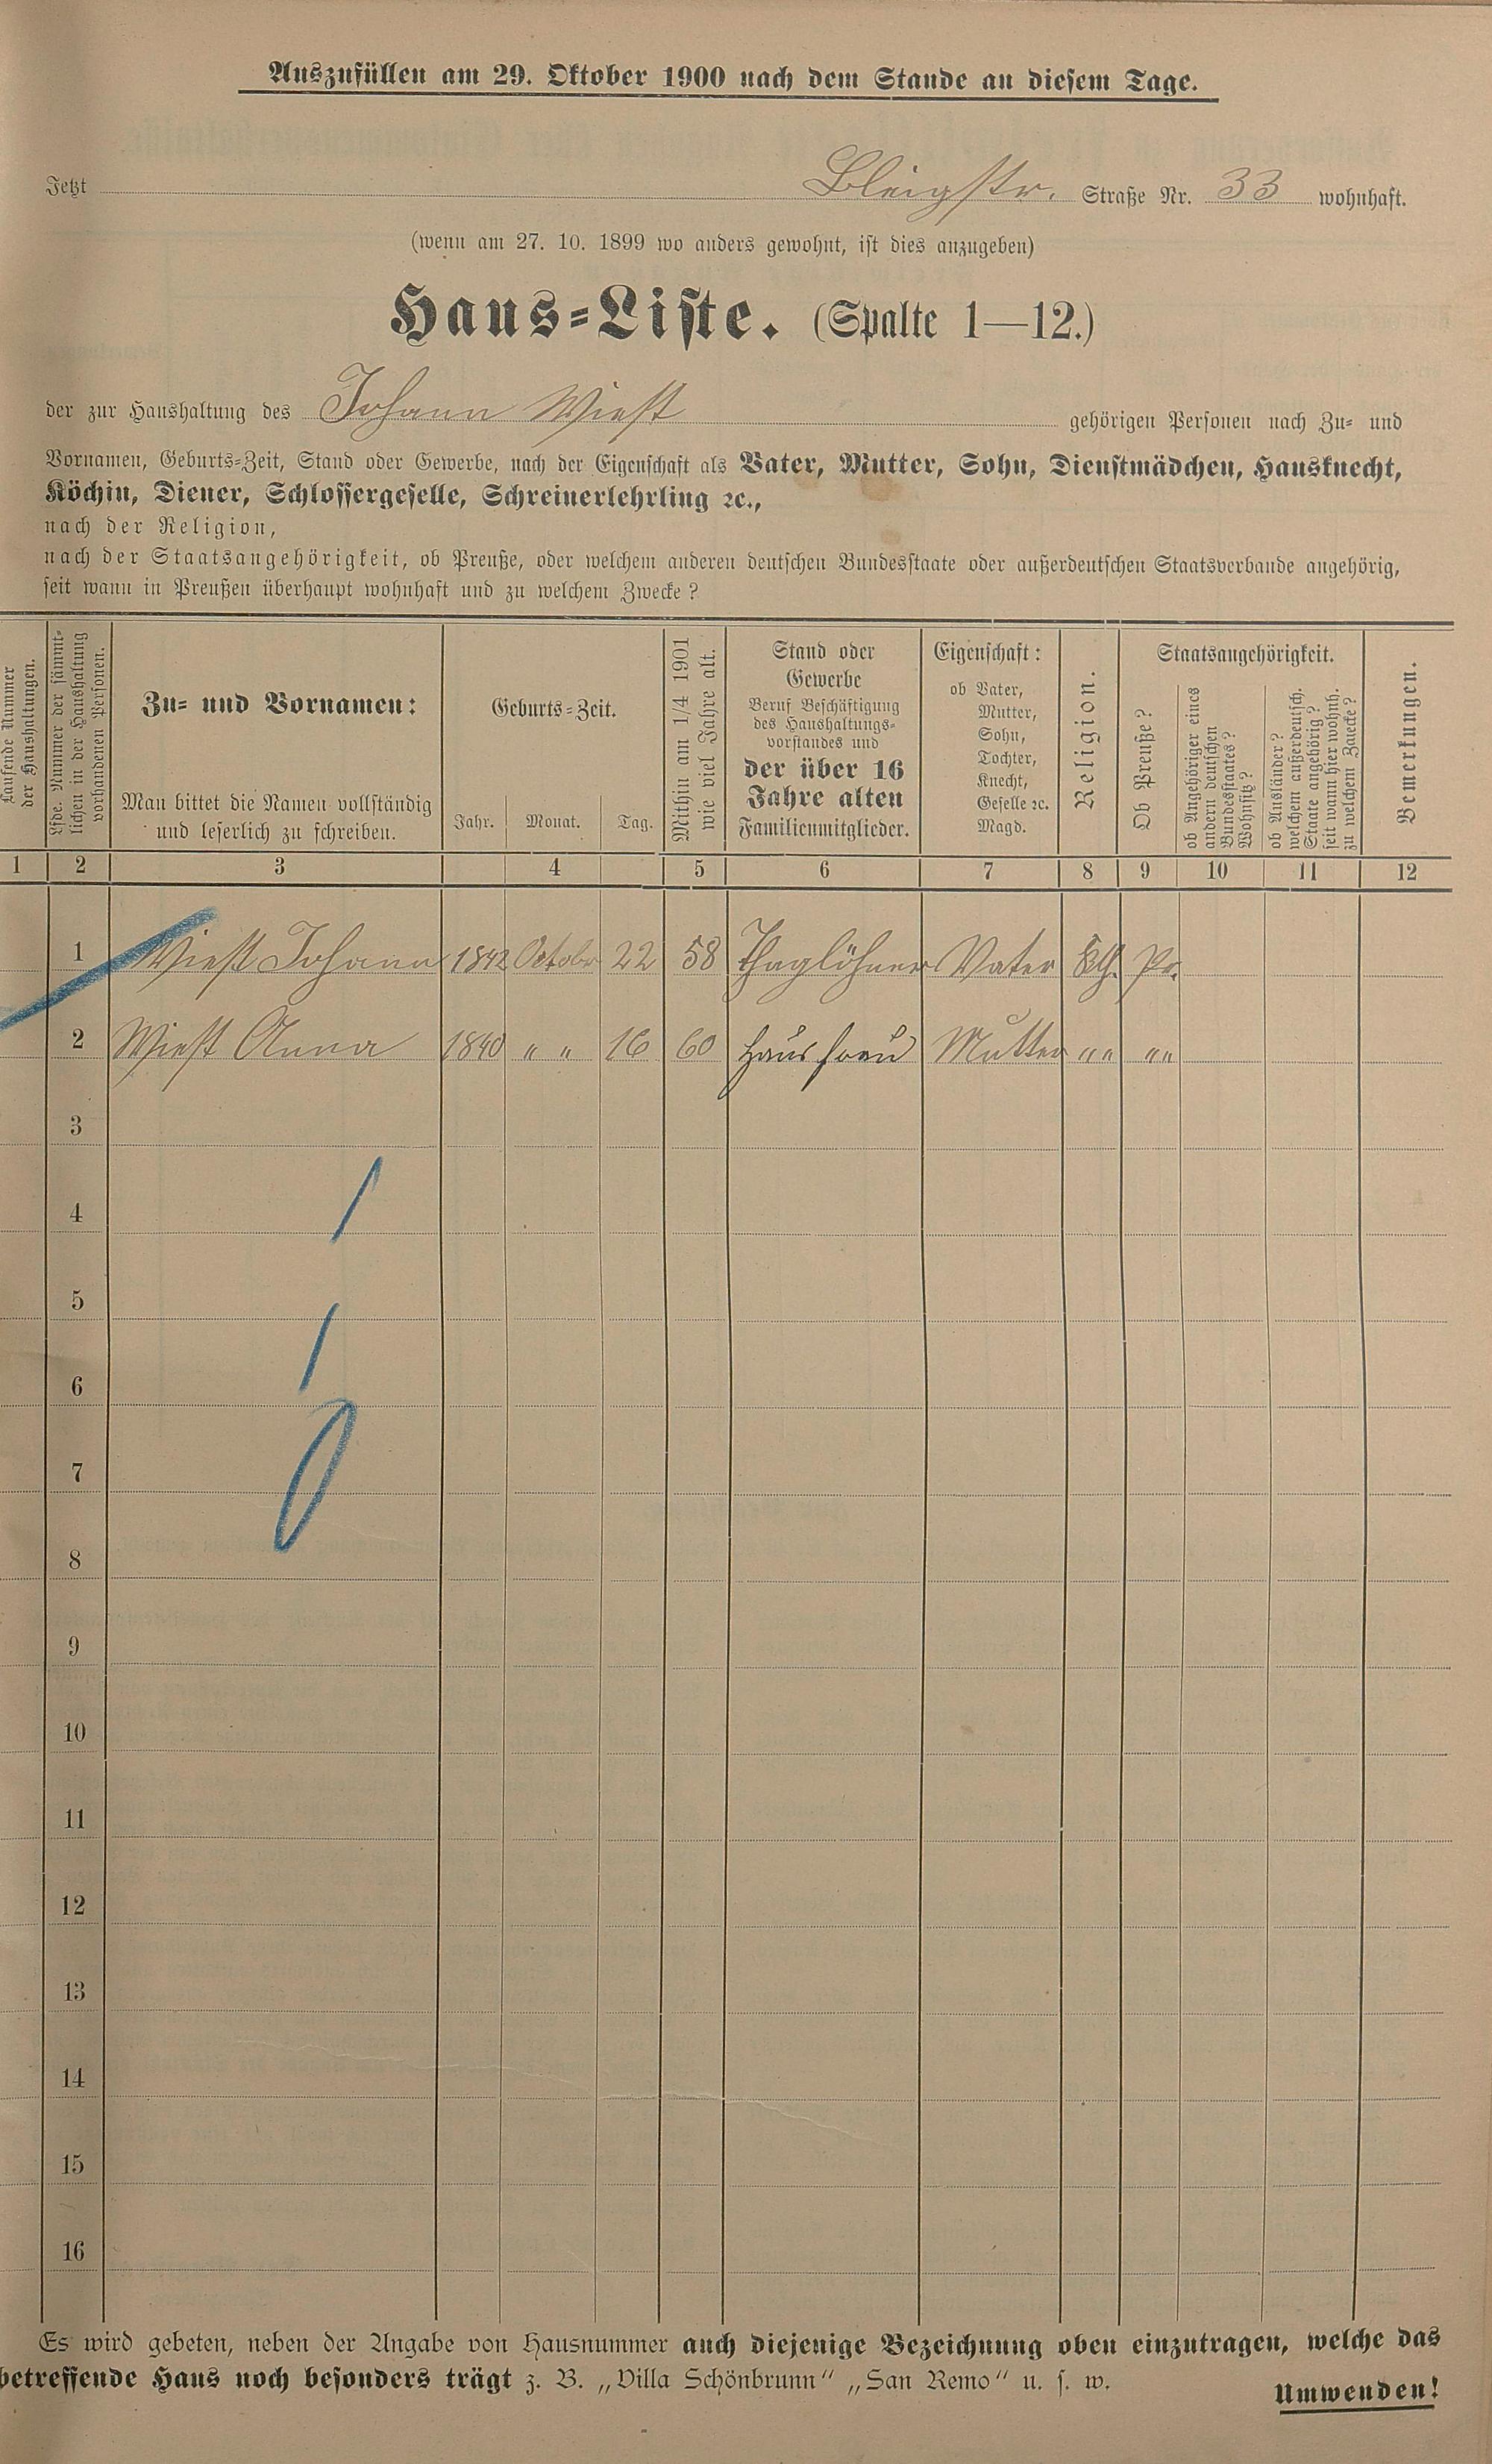 Auszufüllen am 29. Oktober 1900 nach dem Stande an diesem Tage.
Jetzt Bleigstr. Straße Nr. 33 wohnhaft.
(wenn am 27. 10. 1899 wo anders gewohnt, ist dies anzugeben)
Haus-Liste. (Spalte 1—12.)
der zur Haushaltung des Johann Wiest gehörigen Personen nach Zu- und
Vornamen, Geburts-Zeit, Stand oder Gewerbe, nach der Eigenschaft als Vater, Mutter, Sohn, Dienstmädchen, Hausknecht,
Köchin, Diener, Schlossergeselle, Schreinerlehrling ꝛc.,
nach der Religion,
nach der Staatsangehörigkeit, ob Preuße, oder welchem anderen deutschen Bundesstaate oder außerdeutschen Staatsverbande angehörig,
seit wann in Preußen überhaupt wohnhaft und zu welchem Zwecke?
Laufende Nummer
der Haushaltungen.
Lfde. Nummer der sämmt-
lichen in der Haushaltung
vorhandenen Personen.
Zu- und Vornamen:
Man bittet die Namen vollständig
und leserlich zu schreiben.
Geburts-Zeit.
Jahr. Monat. Tag.
Mithin am 1/4 1901
wie viel Jahre alt.
Stand oder
Gewerbe
Beruf Beschäftigung
des Haushaltungs-
vorstandes und
der über 16
Jahre alten
Familienmitglieder.
Eigenschaft:
ob Vater,
Mutter,
Sohn,
Tochter,
Knecht,
Geselle ꝛc.
Magd.
Religion.
Staatsangehörigkeit.
Ob Preuße?
ob Angehöriger eines
andern deutschen
Bundesstaates?
Wohnsitz?
ob Ausländer?
welchem außerdeutsch.
Staate angehörig?
seit wann hier wohnh.
zu welchem Zwecke?
Bemerkungen.
1 2 3 4 5 6 7 8 9 10 11 12
1 Wiest Johann 1842 Octobr 22 58 Thaglöhner Vater Pr.
2 Wiest Anna 1840 " " 16 60 Hausfrau Mutter "" ""
3
4
5
6
7
8
9
10
11
12
13
14
15
16
Es wird gebeten, neben der Angabe von Hausnummer auch diejenige Bezeichnung oben einzutragen, welche das
betreffende Haus noch besonders trägt z. B. „Villa Schönbrunn" „San Remo" u. s. w.
Umwenden!